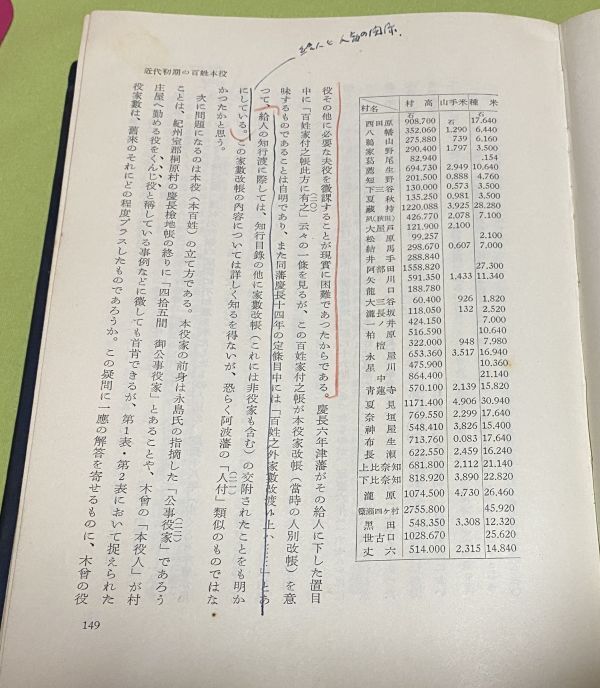 近代初期の百姓本役
給人と人夫の関係.
村名 村高 山手米 種米
西田原 908.700 石 17.640
八幡 352.060 1.290 6.440
鵜山 275.880 739 6.160
家野 290.400 1.797 3.500
葛尾 82.940 .154
薦生 694.730 2.949 10.640
短野 201.500 0.888 4.760
下三谷 130.000 0.573 3.500
夏秋 135.250 0.981 3.500
蔵持 1220.088 3.925 28.280
(秋田) 426.770 2.078 7.100
大屋戸 121.900 2.100
松原 99.257 2.100
結馬 298.670 0.607 7.000
井手 288.840
阿部田 1558.820 27.300
矢川 591.350 1.433 11.340
龍口 188.780
大谷 60.400 926 1.820
三長坂 118.050 132 2.520
一ノ井 424.150 7.000
柏原 516.590 10.640
檀 322.000 948 7.980
永屋 653.360 3.517 16.940
星川 475.900 10.360
中 864.400 21.140
青蓮寺 570.100 2.139 15.820
夏見 1171.400 4.906 30.940
奈垣 769.550 2.299 17.640
神屋 548.410 3.826 15.400
布生 713.760 0.083 17.640
長瀬 622.550 2.459 16.240
上比奈知 681.800 2.112 21.140
下比奈知 818.920 3.890 22.820
瀧原 1074.500 4.730 26.460
四ケ村 2755.800 45.920
黒田 548.350 3.308 12.320
世古口 1028.670 25.620
丈六 514.000 2,315 14.840
役その他に必要な夫役を徴課することが現實に困難であつたからである。慶長六年津藩がその給人に下した置目
中に「百姓家付之帳此方に有之」(二〇)云々の一條を見るが、この百姓家付之帳が本役家改帳(當時の人別改帳)を意
味するものであることは自明であり、また同藩慶長十四年の定條目中には「百姓之外家數改渡ノ上ハ……」とあ
つて、給人の知行渡に際しては、知行目録の他に家數改帳(これには非役家も含む)の交附されたことをも明か
にしている。この家數改帳の内容については詳しく知るを得ないが、恐らく阿波藩の「人付」(二一)類似のものではな
かつたかと思う。
次に問題になるのは本役(本百姓)の立て方である。本役家の前身は永島氏の指摘した「公事役家」(二二)であろう
ことは、紀州室郡桐原村の慶長檢地帳の終りに「四拾五間 御公事役家」とあることや、木曾の「本役人」が村
庄屋へ勤める役をくんじ役と称している事例などに徴しても首肯できるが、第1表・第2表において捉えられた
役家數は、舊來のそれにどの程度プラスしたものであろうか。この疑問に一應の解答を寄せるものに、木曾の役
149